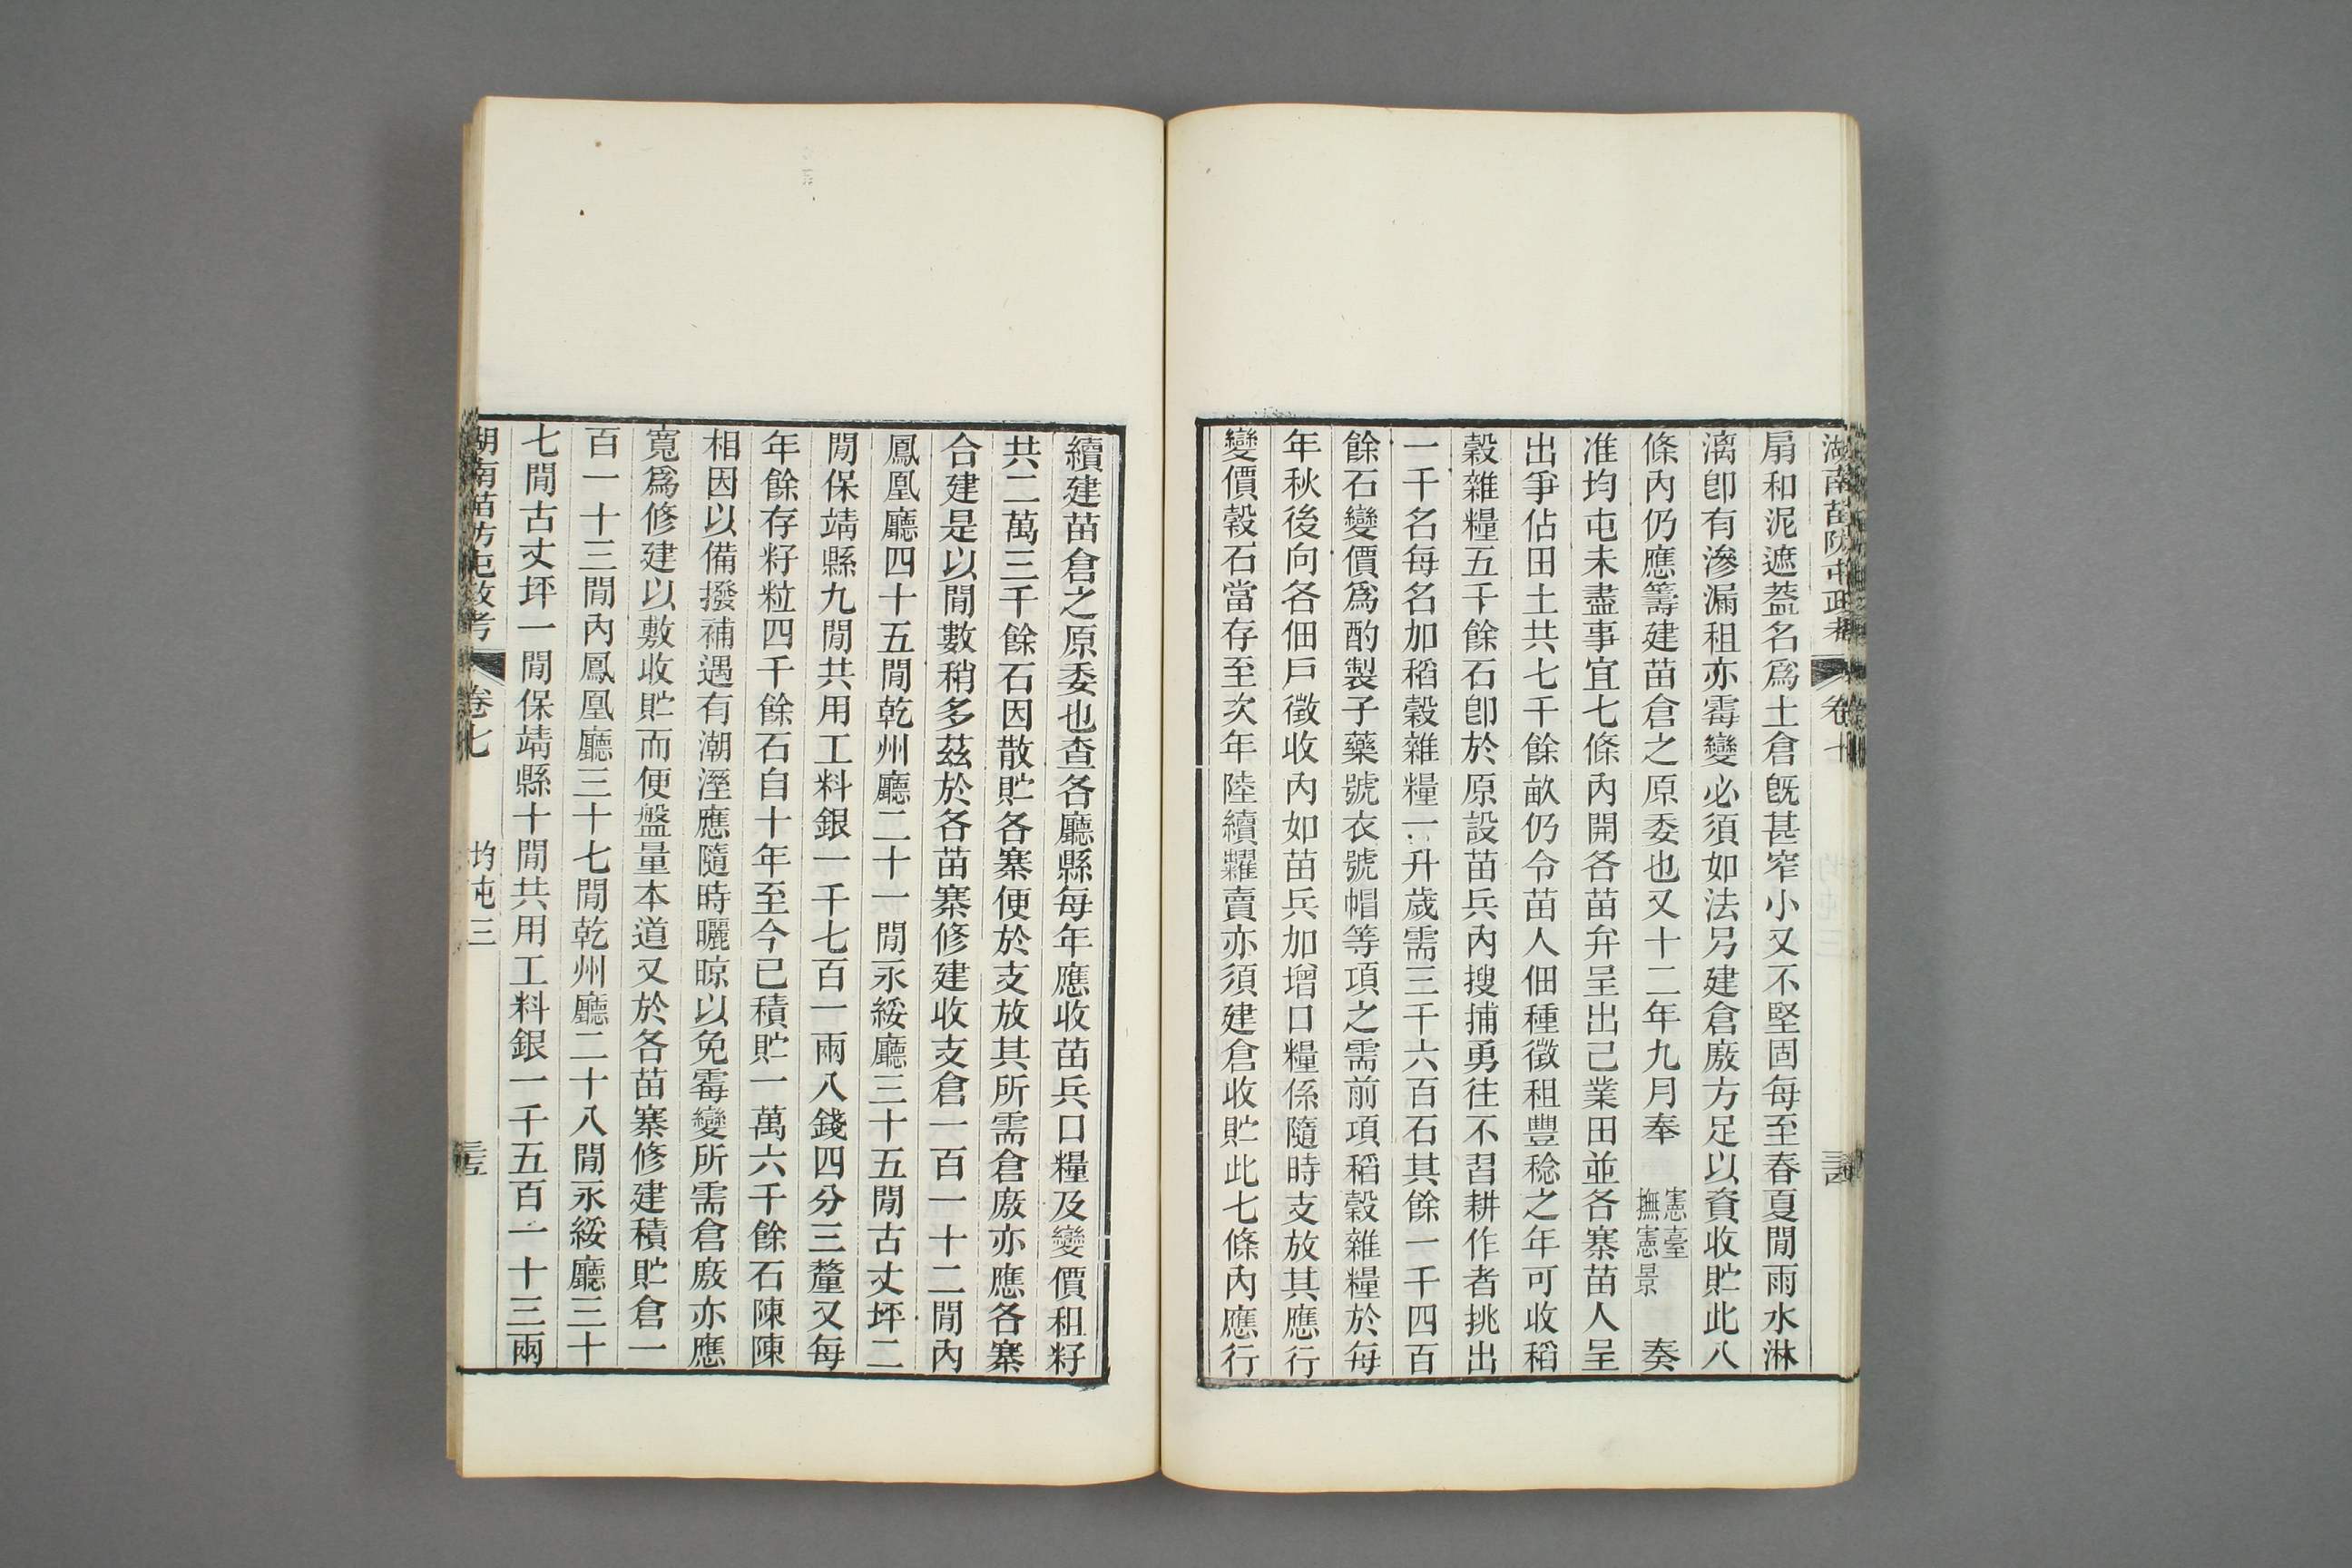 湖南苗防屯政考 卷七
扇和泥遮葢名爲土倉旣甚窄小又不堅固每至春夏閒雨水淋
漓卽有滲漏租亦霉變必須如法另建倉廒方足以資收貯此八
條內仍應籌建苗倉之原委也又十二年九月奉 憲臺撫憲景 奏
准均屯未盡事宜七條內開各苗弁呈出己業田並各寨苗人呈
出爭佔田土共七千餘畝仍令苗人佃種徵租豐稔之年可收稻
穀雜糧五千餘石卽於原設苗兵內搜捕勇往不習耕作者挑出
一千名每名加稻穀雜糧一升歲需三千六百石其餘一千四百
餘石變價爲酌製子藥號衣號帽等項之需前項稻穀雜糧於每
年秋後向各佃戶徵收內如苗兵加增口糧係隨時支放其應行
變價穀石當存至次年陸續糶賣亦須建倉收貯此七條內應行
續建苗倉之原委也查各廳縣每年應收苗兵口糧及變價租籽
共二萬三千餘石因散貯各寨便於支放其所需倉廒亦應各寨
合建是以閒數稍多茲於各苗寨修建收支倉一百一十二閒內
鳳凰廳四十五閒乾州廳二十一閒永綏廳三十五閒古丈坪二
閒保靖縣九閒共用工料銀一千七百一兩八錢四分三釐又每
年餘存籽粒四千餘石自十年至今已積貯一萬六千餘石陳陳
相因以備撥補遇有潮溼應隨時曬晾以免霉變所需倉廒亦應
寬爲修建以敷收貯而便盤量本道又於各苗寨修建積貯倉一
百一十三閒內鳳凰廳三十七閒乾州廳二十八閒永綏廳三十
七閒古丈坪一閒保靖縣十閒共用工料銀一千五百一十三兩
湖南苗防屯政考 卷七 均屯三